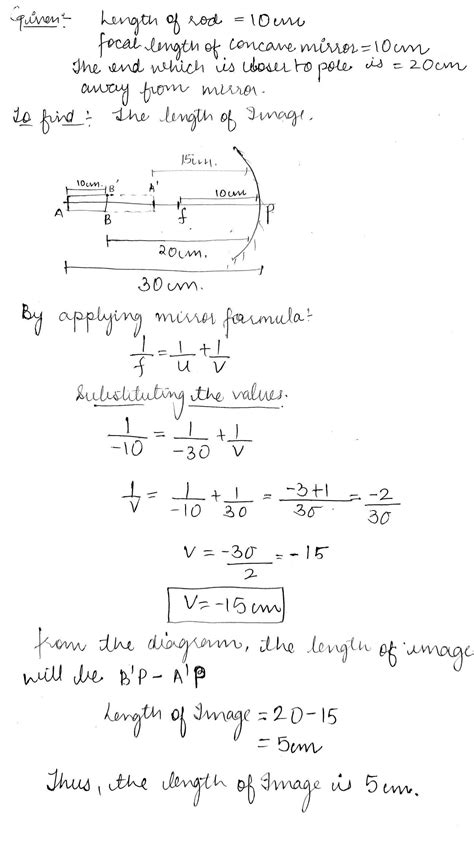 Given:- Length of rod = 10cm
focal length of concave mirror = 10cm
The end which is closer to pole is = 20cm
away from mirror.
To find:- The length of Image.
15cm.
10cm. B' A' 10cm
A B f P
20cm.
30cm.
By applying mirror formula:-
1/f = 1/u + 1/v
Substituting the values.
1/-10 = 1/-30 + 1/v
1/v = 1/-10 + 1/30 = -3+1/30 = -2/30
v = -30/2 = -15
V = -15cm
from the diagram, the length of image
will be B'P - A'P
Length of Image = 20-15
= 5cm
Thus, the length of Image is 5cm.